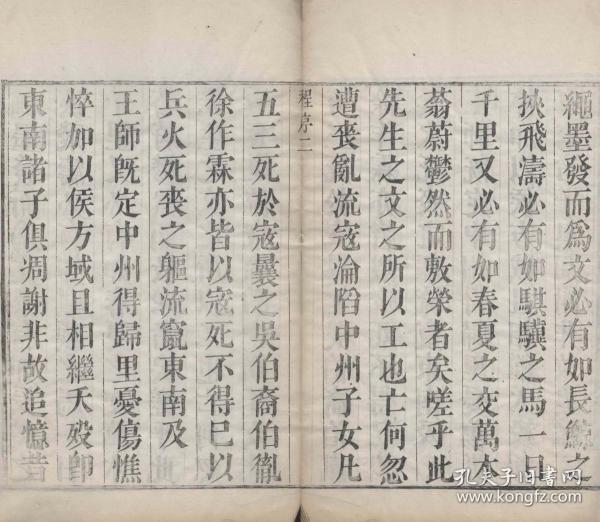 繩墨發而爲文必有如長鯨之
挾飛濤必有如騏驥之馬一日
千里又必有如春夏之交萬木
蓊蔚鬱然而敷榮者矣嗟乎此
先生之文之所以工也亡何忽
遭喪亂流寇淪陷中州子女凡
程序二
五三死於寇曩之吳伯裔伯胤
徐作霖亦皆以寇死不得已以
兵火死喪之軀流竄東南及
王師旣定中州得歸里憂傷憔
悴加以侯方域且相繼夭殁卽
東南諸子俱凋謝非故追憶昔
孔夫子旧书网
www.kongfz.com